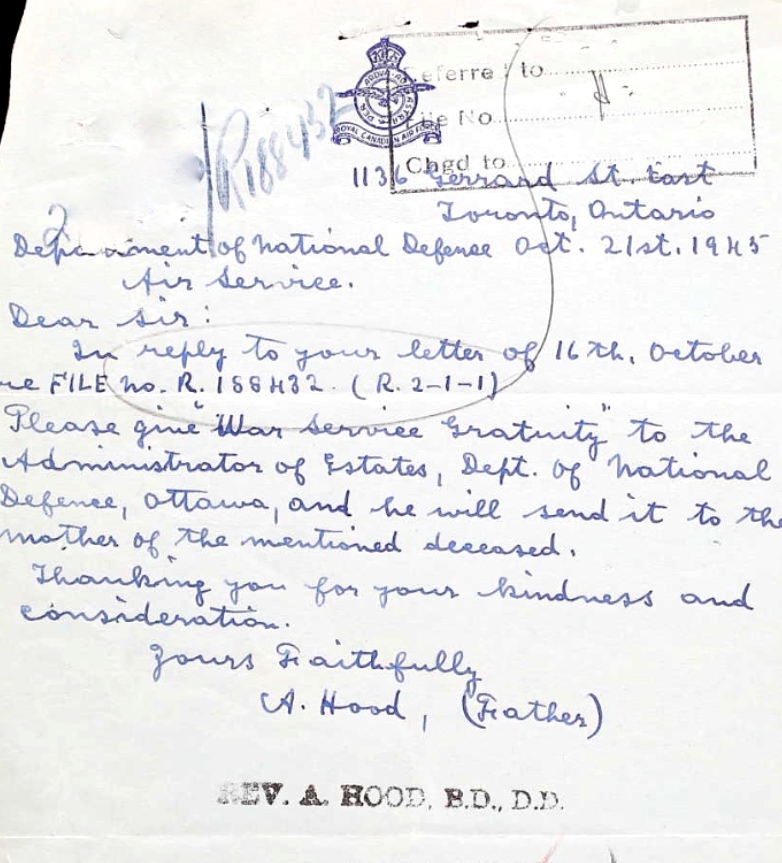 Referred to
File No.
Chgd to
PER ARDUA AD ASTRA
ROYAL CANADIAN AIR FORCE
R188432
1136 Gerrard St. East
Toronto, Ontario
Department of National Defense Oct. 21st. 1945
Air Service.
Dear Sir:
In reply to your letter of 16th, October
re FILE No. R. 188432. (R. 2-1-1)
Please give "War Service Gratuity" to the
Administrator of Estates, Dept. of National
Defence, Ottawa, and he will send it to the
mother of the mentioned deceased.
Thanking you for your kindness and
consideration.
Yours Faithfully
A. Hood, (Father)
REV. A. HOOD, B.D., D.D.